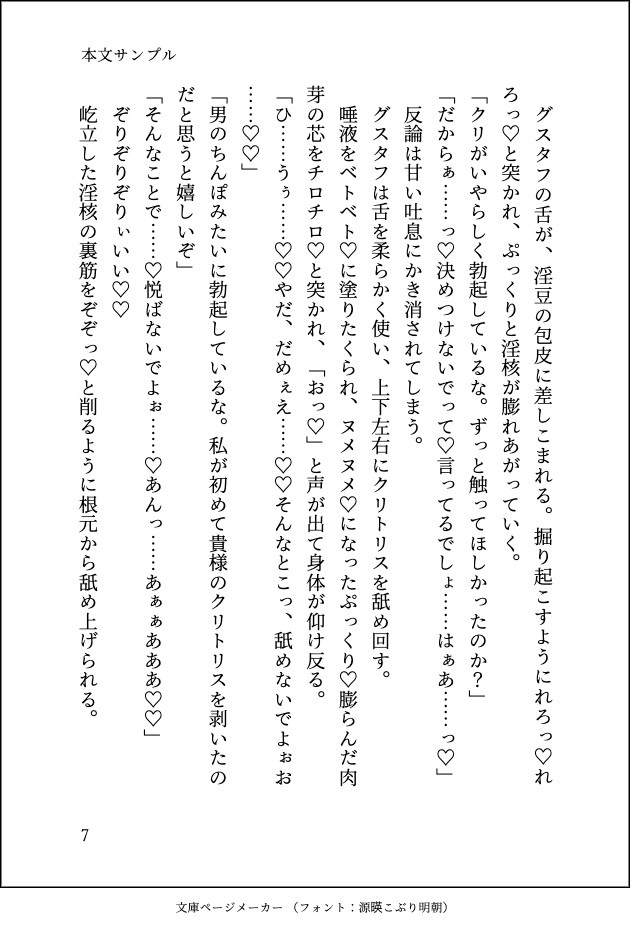 本文サンプル
　グスタフの舌が、淫豆の包皮に差しこまれる。掘り起こすようにれろっ♡れ
ろっ♡と突かれ、ぷっくりと淫核が膨れあがっていく。
「クリがいやらしく勃起しているな。ずっと触ってほしかったのか？」
「だからぁ……っ♡決めつけないでって♡言ってるでしょ……はぁあ……っ♡」
　反論は甘い吐息にかき消されてしまう。
　グスタフは舌を柔らかく使い、上下左右にクリトリスを舐め回す。
　唾液をベトベト♡に塗りたくられ、ヌメヌメ♡になったぷっくり♡膨らんだ肉
芽の芯をチロチロ♡と突かれ、「おっ♡」と声が出て身体が仰け反る。
「ひ……うぅ……♡♡やだ、だめぇえ……♡♡そんなとこっ、舐めないでよぉお
……♡♡」
「男のちんぽみたいに勃起しているな。私が初めて貴様のクリトリスを剥いたの
だと思うと嬉しいぞ」
「そんなことで……♡悦ばないでよぉ……♡あんっ……あぁぁあああ♡♡」
　ぞりぞりぞりぃいい♡♡
　屹立した淫核の裏筋をぞぞっ♡と削るように根元から舐め上げられる。
7
文庫ページメーカー （フォント：源暎こぶり明朝）